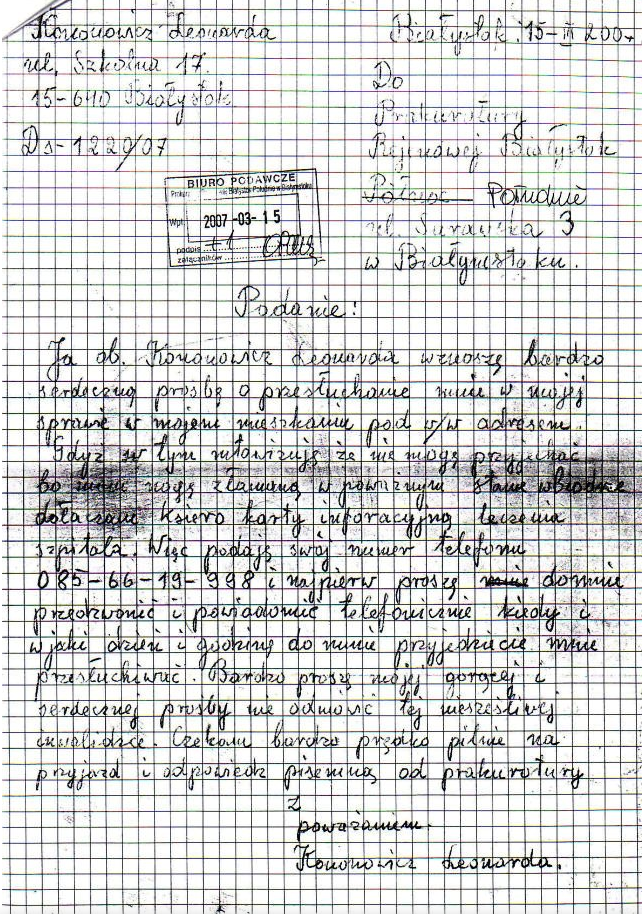 Kononowicz Leonarda
Białystok 15-III 200
ul. Szkolna 17.
15-640 Białystok
Ds-1220/07
Do
Prokuratury
Rejonowej Białystok
Północ Południe
ul. Surawska 3
w Białymstoku.
BIURO PODAWCZE
Wpł. 2007-03-15
podpis
załączników +1
Podanie:
Ja ob. Kononowicz Leonarda wznoszę bardzo
serdeczną prosbę o przesłuchanie mnie w mojej
sprawie w mojem mieszkaniu pod w/w adresem.
Gdyż w tym że nie mogę przyjechać
bo mam nogę złamaną w poważnym stanie wbiodrie
dołączam ksiero karty inforacyjną leczenia
szpitala. Więc podaję swój numer telefonu
085-66-19-998 i najpierw proszę mnie domnie
przedzwonić i powiadomić telefonicznie kiedy i
w jaki dzień i godzinę do mnie przyjedziecie mnie
przesłuchiwać. Bardzo proszę mojej gorącej i
serdecznej prośby nie odmówić tej nieszęśliwej
inwalidzce. Czekam bardzo prędko pilnie na
przyjazd i odpowiedz pisemną od prokuratury
z
poważaniem.
Kononowicz Leonarda.